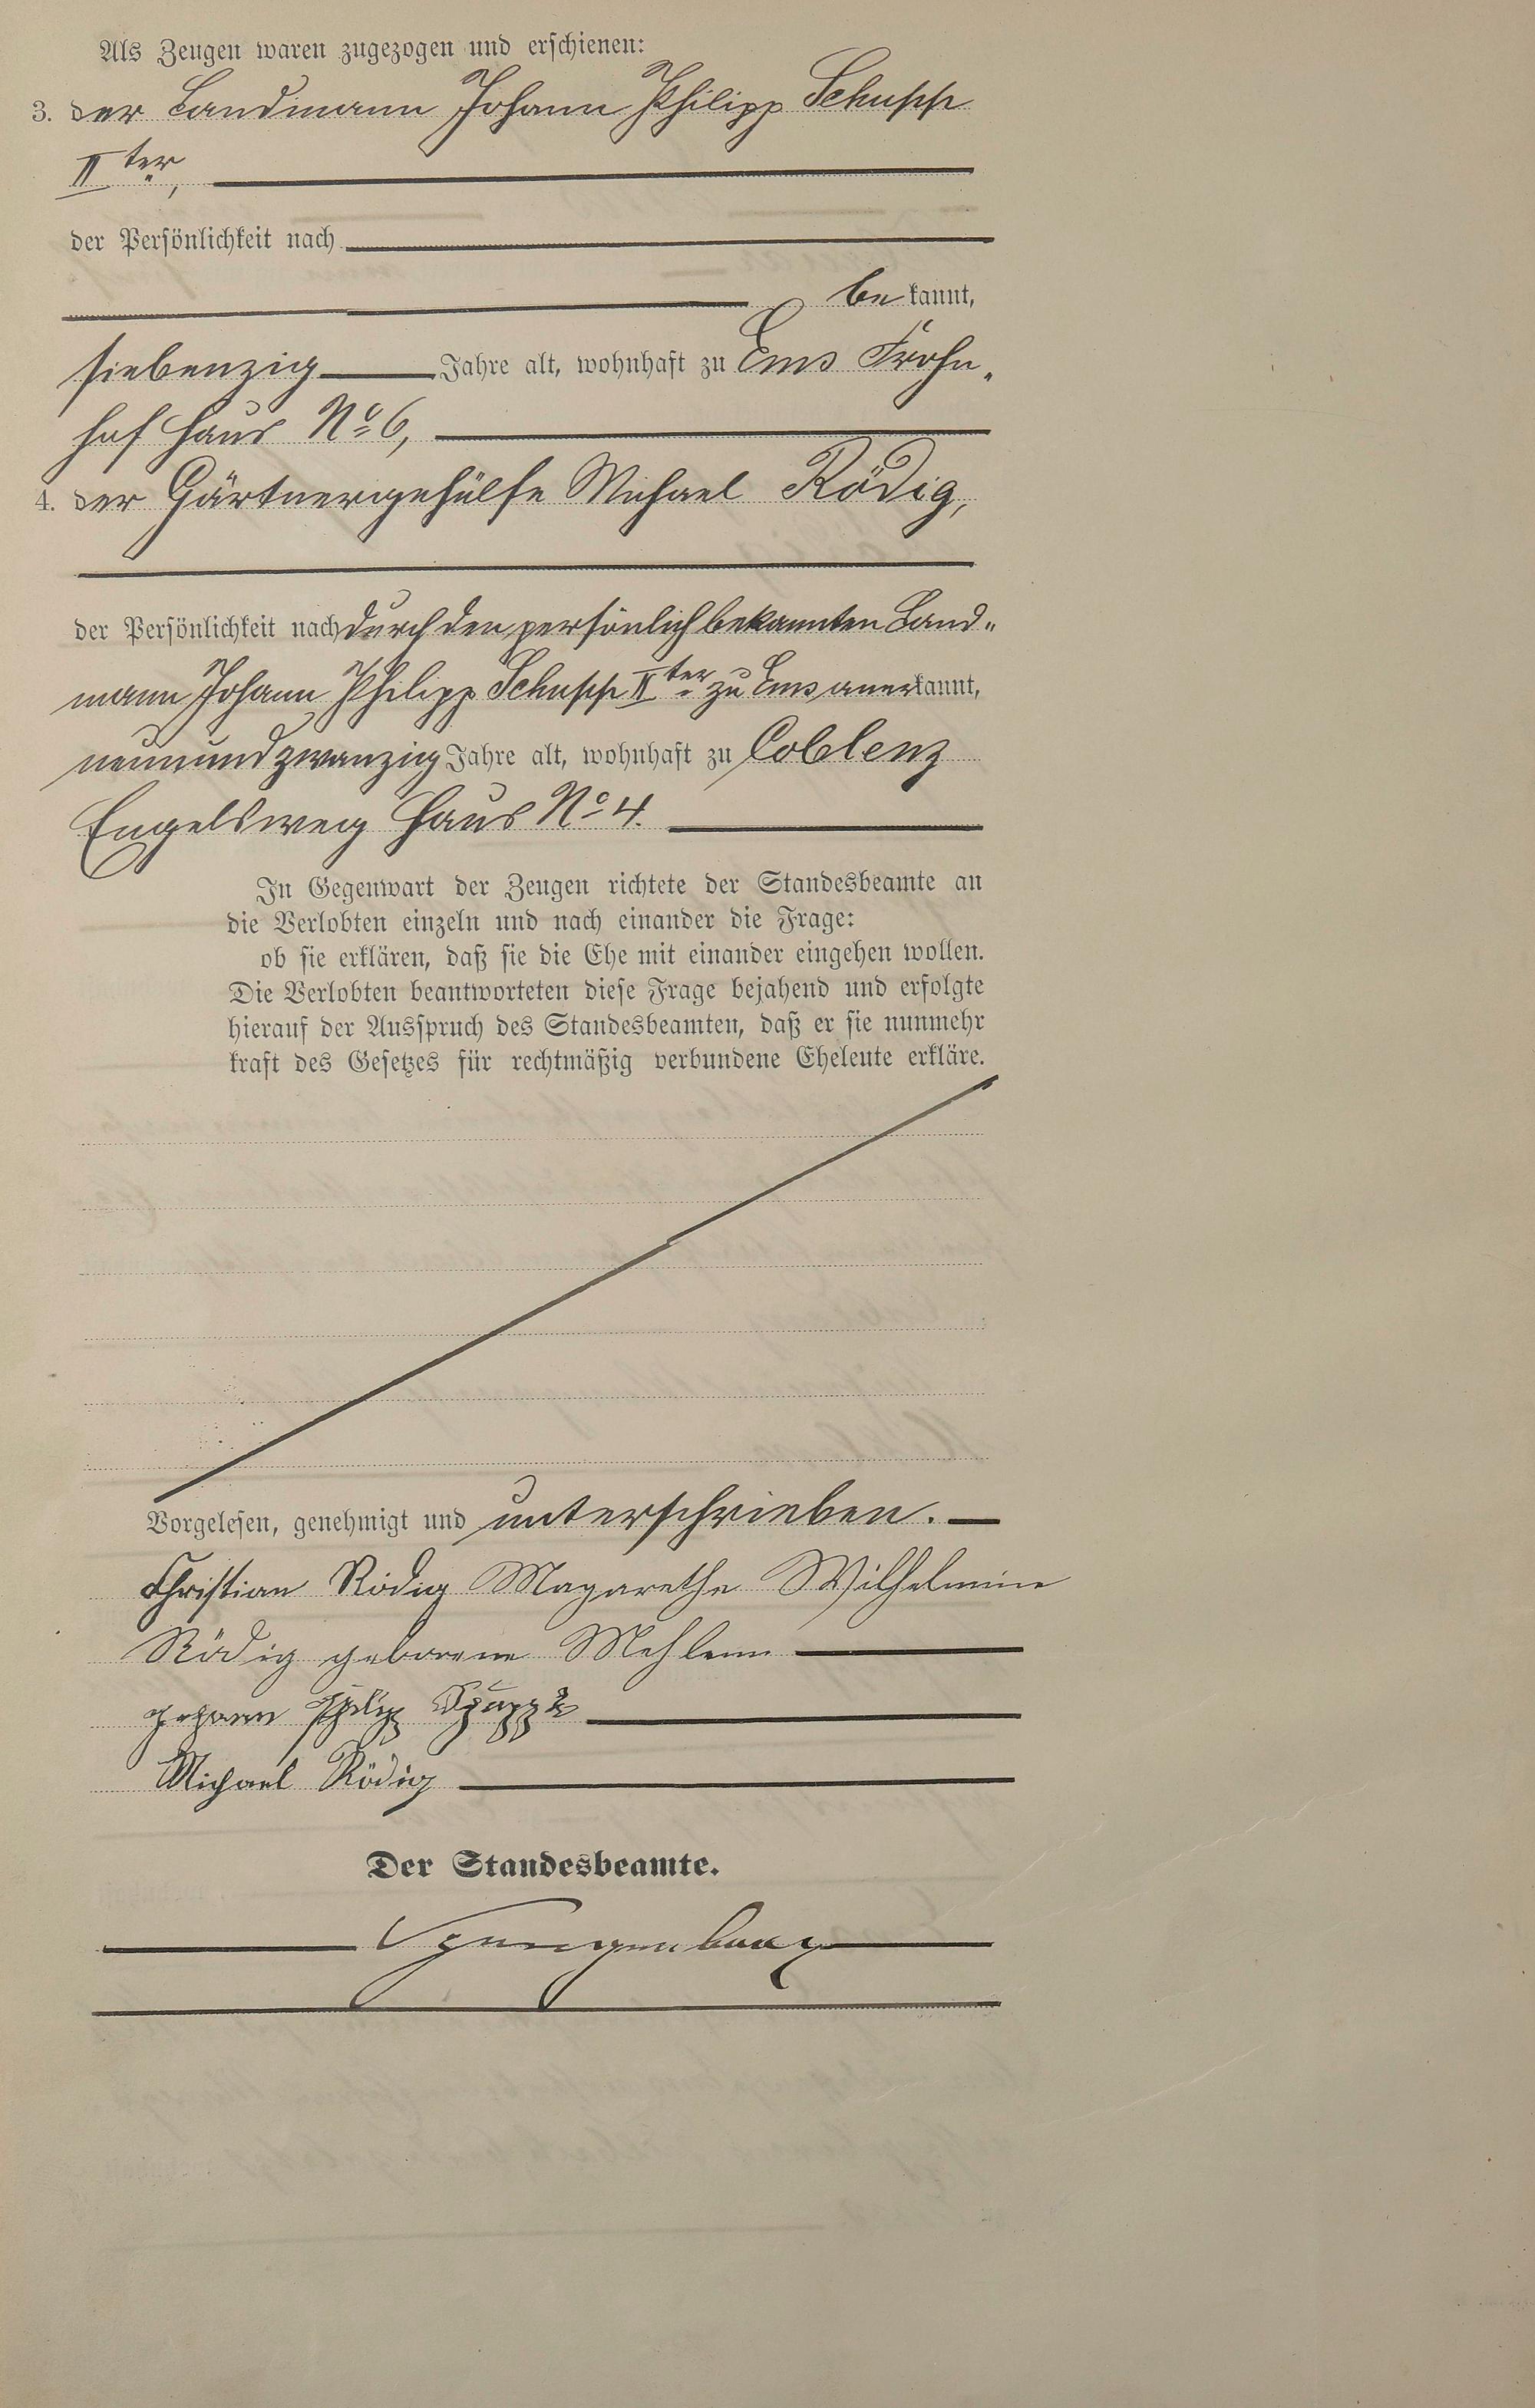 Als Zeugen waren zugezogen und erschienen:
3. der Landmann Johann Philipp Schupp
II ter,
der Persönlichkeit nach
be kannt,
siebenzig Jahre alt, wohnhaft zu Ems Frohn„
hof Haus No 6,
4. der Gärtnergehülfe Michael Rödig,
der Persönlichkeit nach durch den persönlich bekannten Land„
mann Johann Philipp Schupp II ter zu Ems anerkannt,
neunundzwanzig Jahre alt, wohnhaft zu Coblenz
Engelsweg Haus No 4.
In Gegenwart der Zeugen richtete der Standesbeamte an
die Verlobten einzeln und nach einander die Frage:
ob sie erklären, daß sie die Ehe mit einander eingehen wollen.
Die Verlobten beantworteten diese Frage bejahend und erfolgte
hierauf der Ausspruch des Standesbeamten, daß er sie nunmehr
kraft des Gesetzes für rechtmäßig verbundene Eheleute erkläre.
Vorgelesen, genehmigt und unterschrieben.
Christian Rödig Magarethe Wilhelmine
Rödig geborene Mehlem
Philip Schupp 2
Michael Rödig
Der Standesbeamte.
Spangenberg